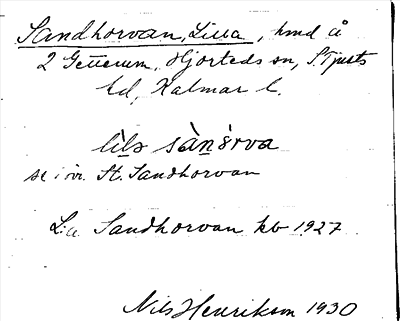 Sandhorvan, Lilla, hmd å
2 Getterum, Hjorteds sn, S. Tjusts
hd, Kalmar l.
lìlə sàn èrva
se i öv. St. Sandhorvan
L:a Sandhorvan kb 1927
Nils Henrikson 1930